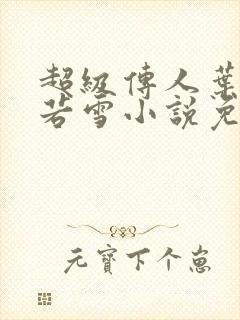 超級傳人葉
若雪小說免
元寶下个崽